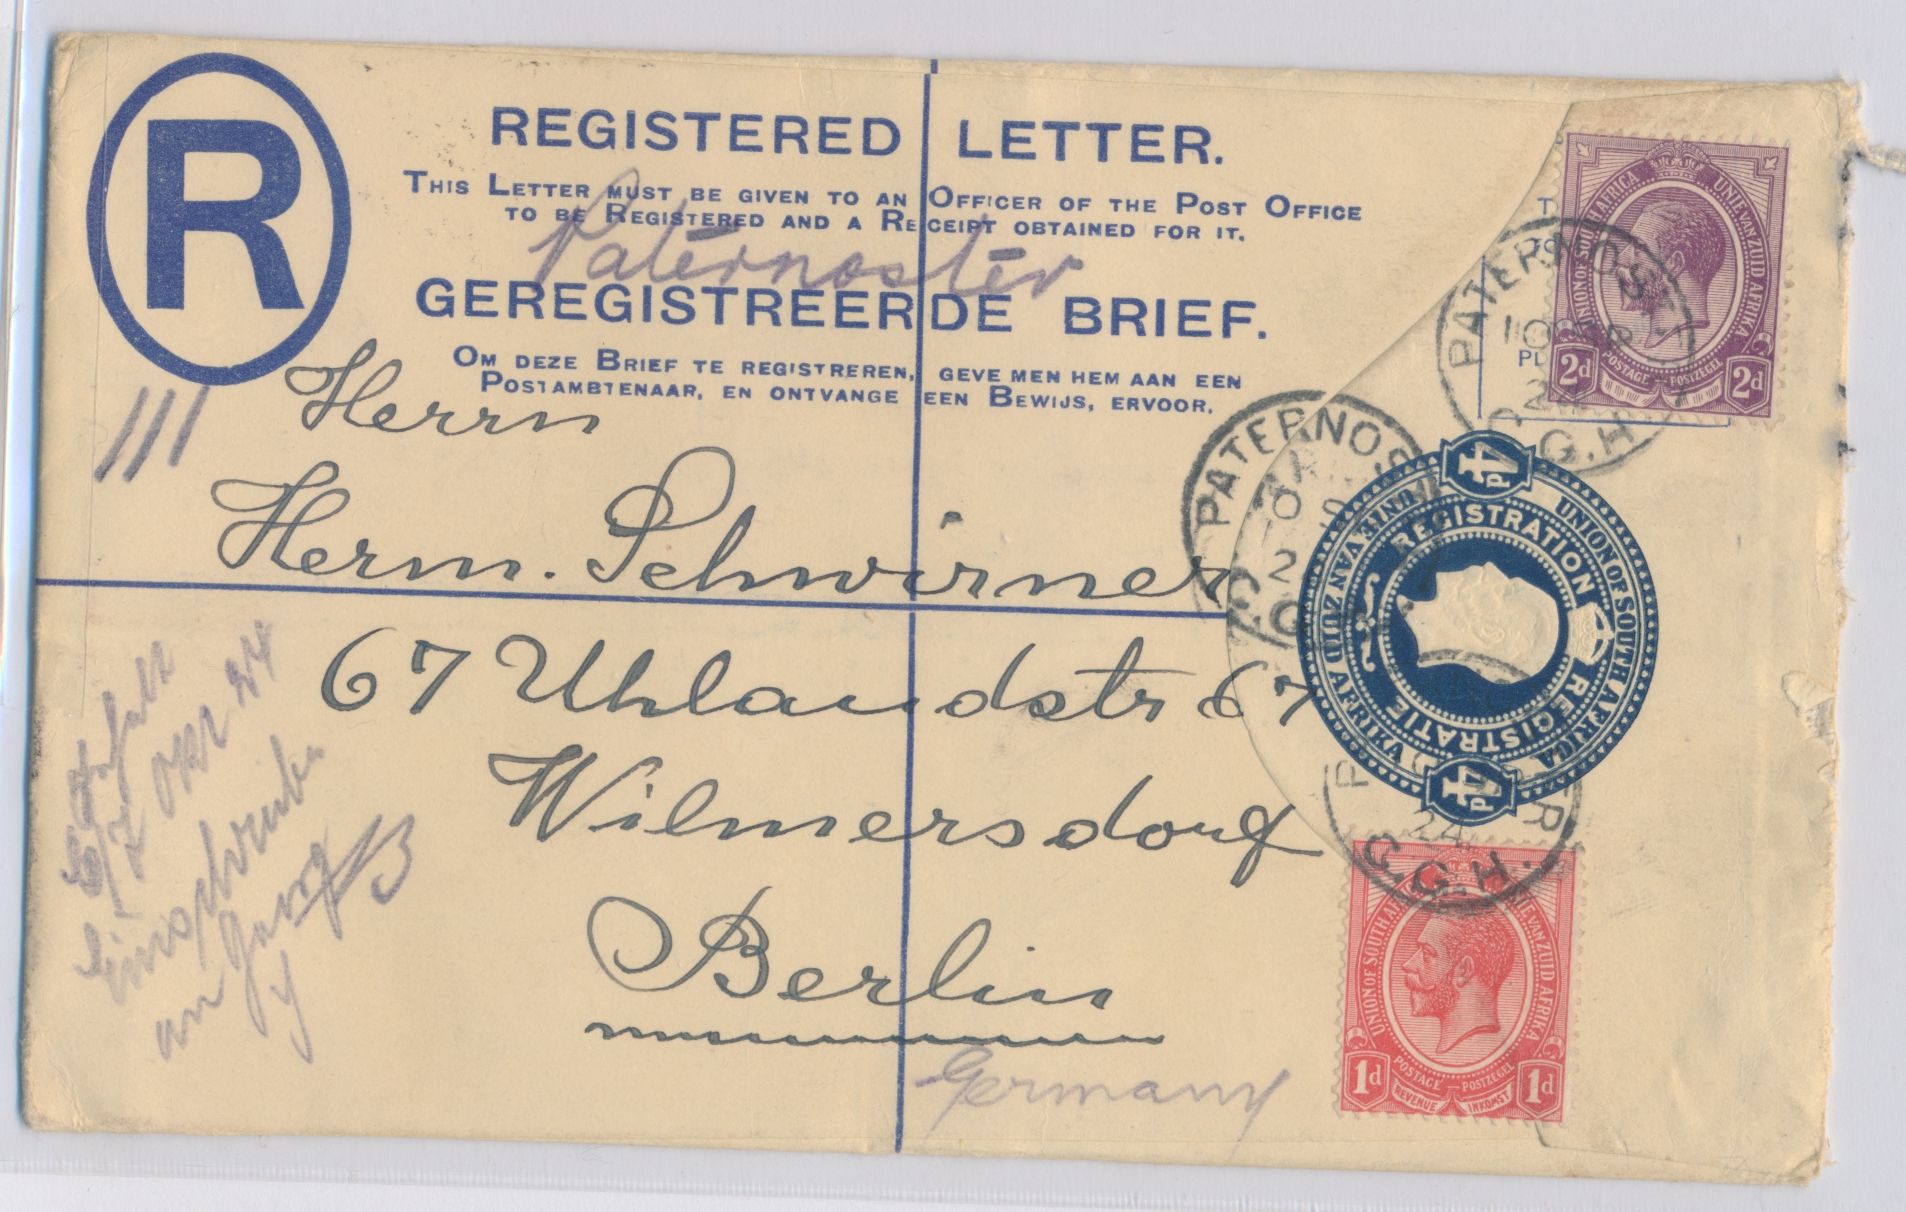 R
REGISTERED LETTER.
THIS LETTER MUST BE GIVEN TO AN OFFICER OF THE POST OFFICE
TO BE REGISTERED AND A RECEIPT OBTAINED FOR IT.
Paternoster
GEREGISTREERDE BRIEF.
OM DEZE BRIEF TE REGISTREREN, GEVE MEN HEM AAN EEN
POSTAMBTENAAR, EN ONTVANGE EEN BEWIJS, ERVOOR.
UNION OF SOUTH AFRICA UNIE VAN ZUID AFRIKA
2d POSTAGE POSTZEGEL 2d
PATERNOST
24
G.H
111
Herrn
Herm. Schwirner
67 Uhlandstr 67
Wilmersdorf
Berlin
Germany
PATERNOS
2
UNIE VAN ZUID AFRIKA UNION OF SOUTH AFRICA
REGISTRATION
REGISTRATIE
4d
4d
24
C.G.H.
UNION OF SOUTH AFRICA UNIE VAN ZUID AFRIKA
1d POSTAGE POSTZEGEL 1d
REVENUE INKOMST